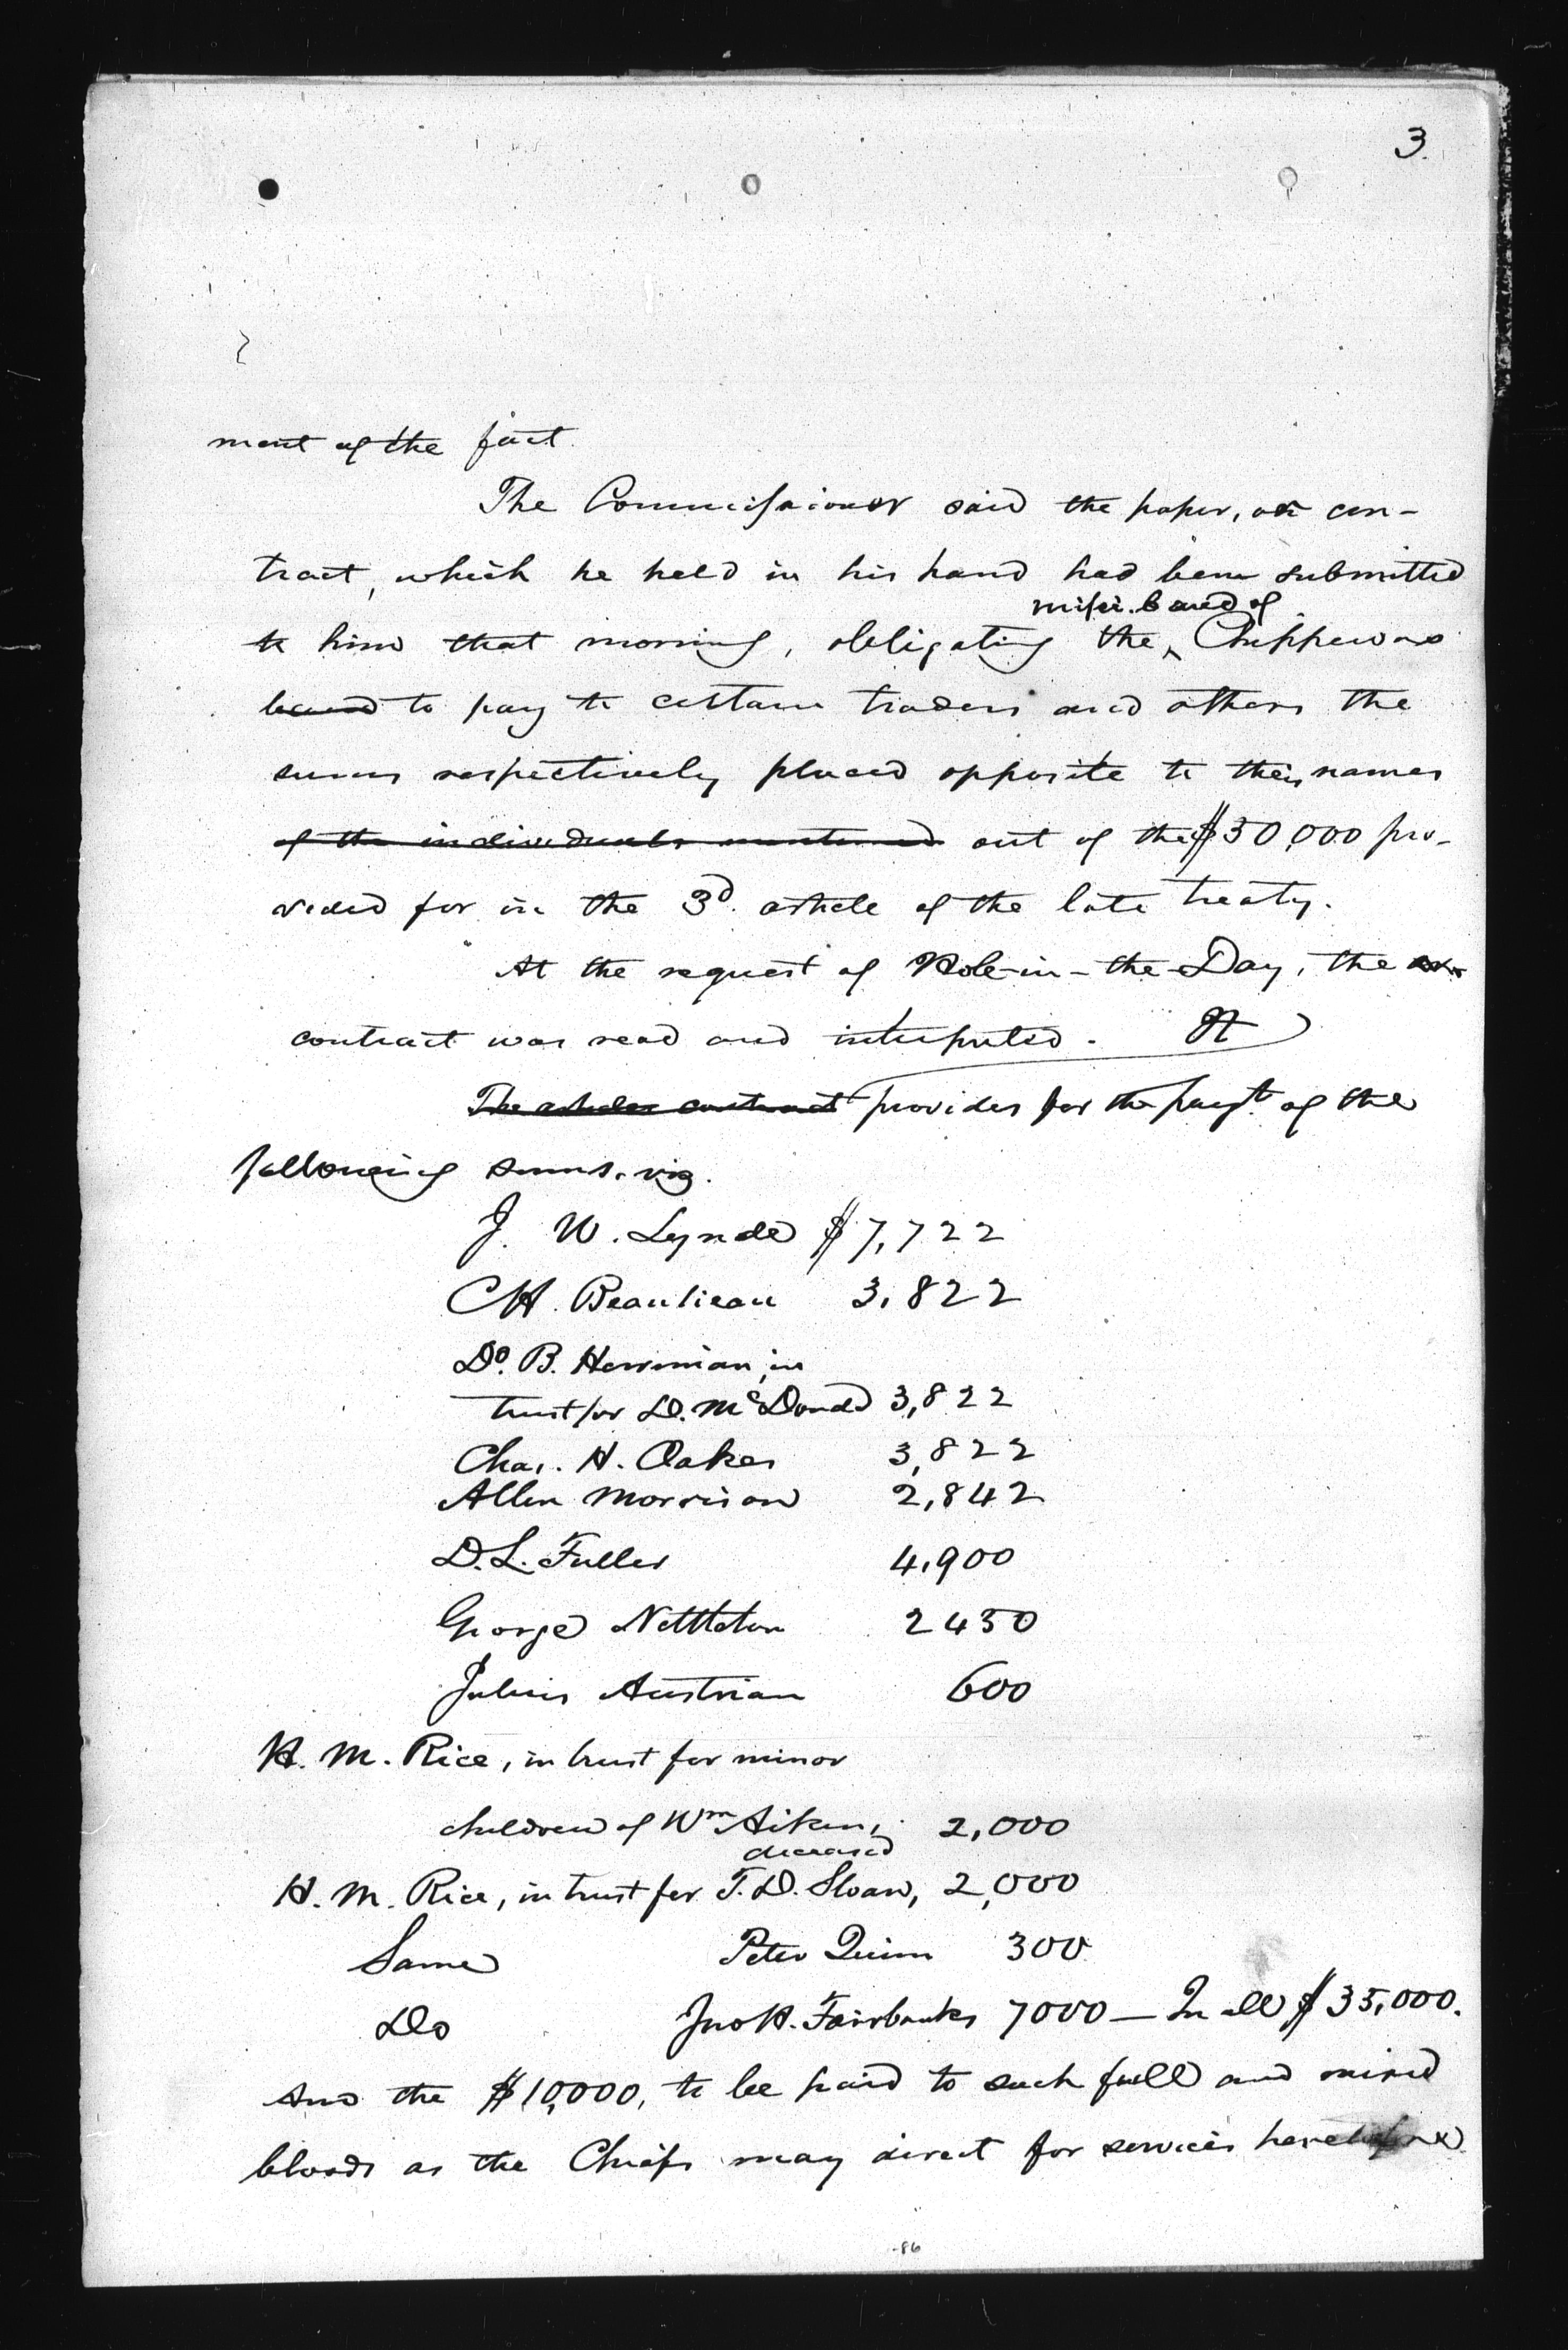 3.
ment of the fact.
The Commissioner said the paper, or con-
tract, which he held in his hand had been submitted
missi. band of
to him that morning, obligating the Chippewas
band to pay to certain traders and others the
sums respectively placed opposite to their names
of the individuals mentioned out of the $50,000 pro-
vided for in the 3d. article of the late treaty.
At the request of Hole-in-the-Day, the
contract was read and interpreted. It
The articles contract provides for the payt. of the
following sums. viz.
J. W. Lynde $7,722
C H. Beaulieau 3,822
Do. B. Herriman, in
trust for D. McDonald 3,822
Chas. H. Oakes 3,822
Allen Morrison 2,842
D. L. Fuller 4,900
George Nettleton 2450
Julius Austrian 600
H. M. Rice, in trust for minor
children of Wm Aiken, 2,000
deceased
H. M. Rice, in trust for T. D. Sloan, 2,000
Same Peter Quinn 300
Do Jno H. Fairbanks 7000 — In all $35,000.
And the $10,000, to be paid to such full and mixed
bloods as the Chiefs may direct for services heretofore
-86